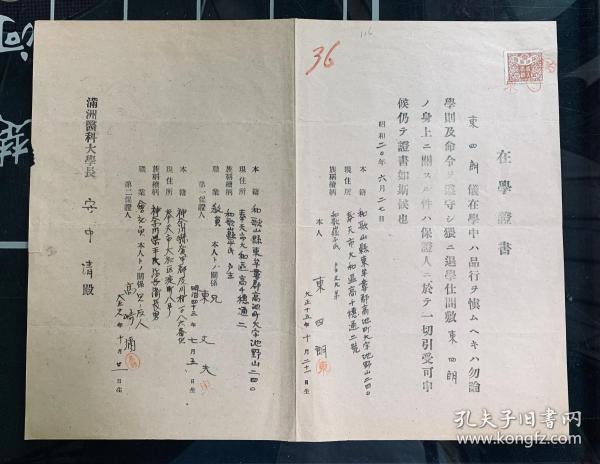 36
116
在學證書
東 四朗 儀在學中ハ品行ヲ愼ムヘキハ勿論
學則及命令ヲ遵守シ猥ニ退學仕間敷 東 四朗
ノ身上ニ關スル件ハ保證人ニ於テ一切引受可申
候仍テ證書如斯候也
昭和二〇年六月二七日
本籍 和歌山縣東牟婁郡高池町大字池野山二四〇
現住所 奉天市大和區高千穗通二
族稱續柄 和歌山縣平民
本人 東 四朗
大正十五年十月二十一日生
本籍 和歌山縣東牟婁郡高池町大字池野山二四〇
現住所 奉天市大和區高千穗通二
族稱續柄 和歌山縣平民 戶主
職業 教員 本人トノ關係 兄
第一保證人 東 文夫
明治四十三年七月五日生
本籍 神奈川縣
現住所 奉天市大和區
族稱續柄 神奈川縣平民 長男
職業 本人トノ關係 友人
第二保證人 高崎
大正九年十月廿一日生
滿洲醫科大學長 守中 清 殿
孔夫子旧书网
www.kongfz.com